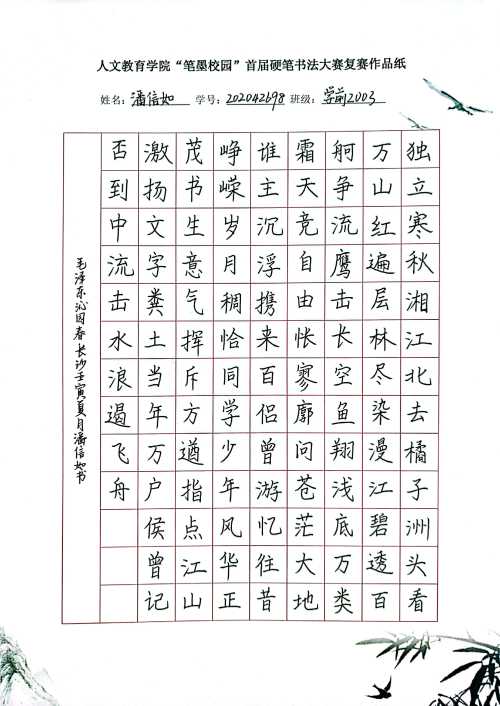 人文教育学院“笔墨校园”首届硬笔书法大赛复赛作品纸
姓名：潘信如 学号：202042698 班级：学前2003
独立寒秋湘江北去橘子洲头看
万山红遍层林尽染漫江碧透百
舸争流鹰击长空鱼翔浅底万类
霜天竞自由怅寥廓问苍茫大地
谁主沉浮携来百侣曾游忆往昔
峥嵘岁月稠恰同学少年风华正
茂书生意气挥斥方遒指点江山
激扬文字粪土当年万户侯曾记
否到中流击水浪遏飞舟
毛泽东沁园春长沙壬寅夏月潘信如书